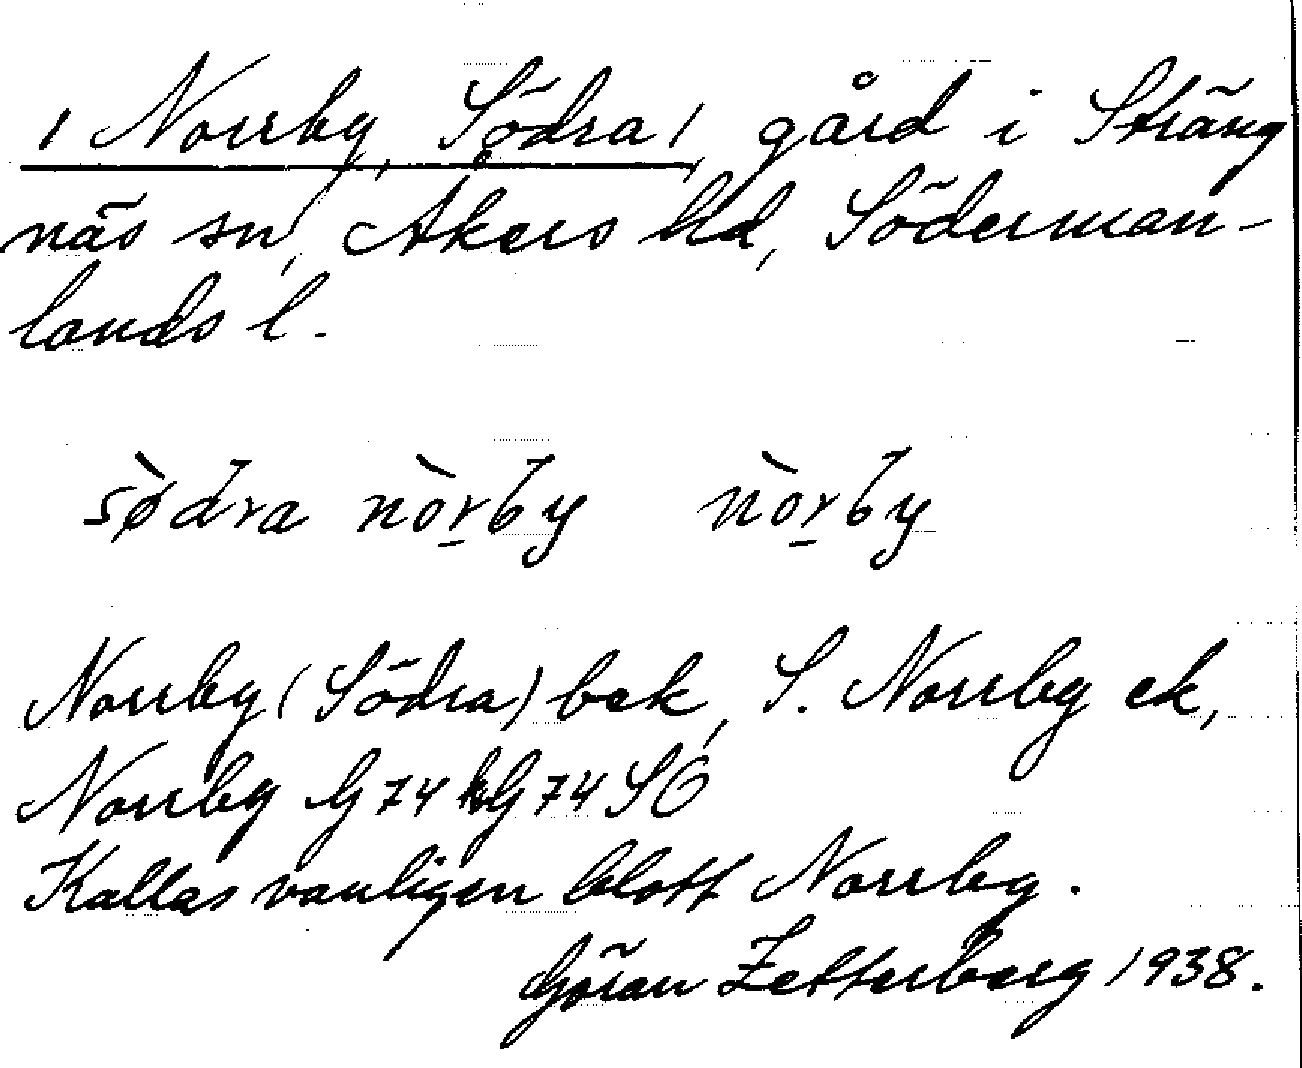 / Norrby, Södra /, gård i Sträng
näs sn, Åkers hd, Söderman-
lands l.
sø̀dra nòrby nòrby
Norrby (Södra) bek, S. Norrby ek,
Norrby G74 hG74 SÖ
Kallas vanligen blott Norrby.
Göran Zetterberg 1938.